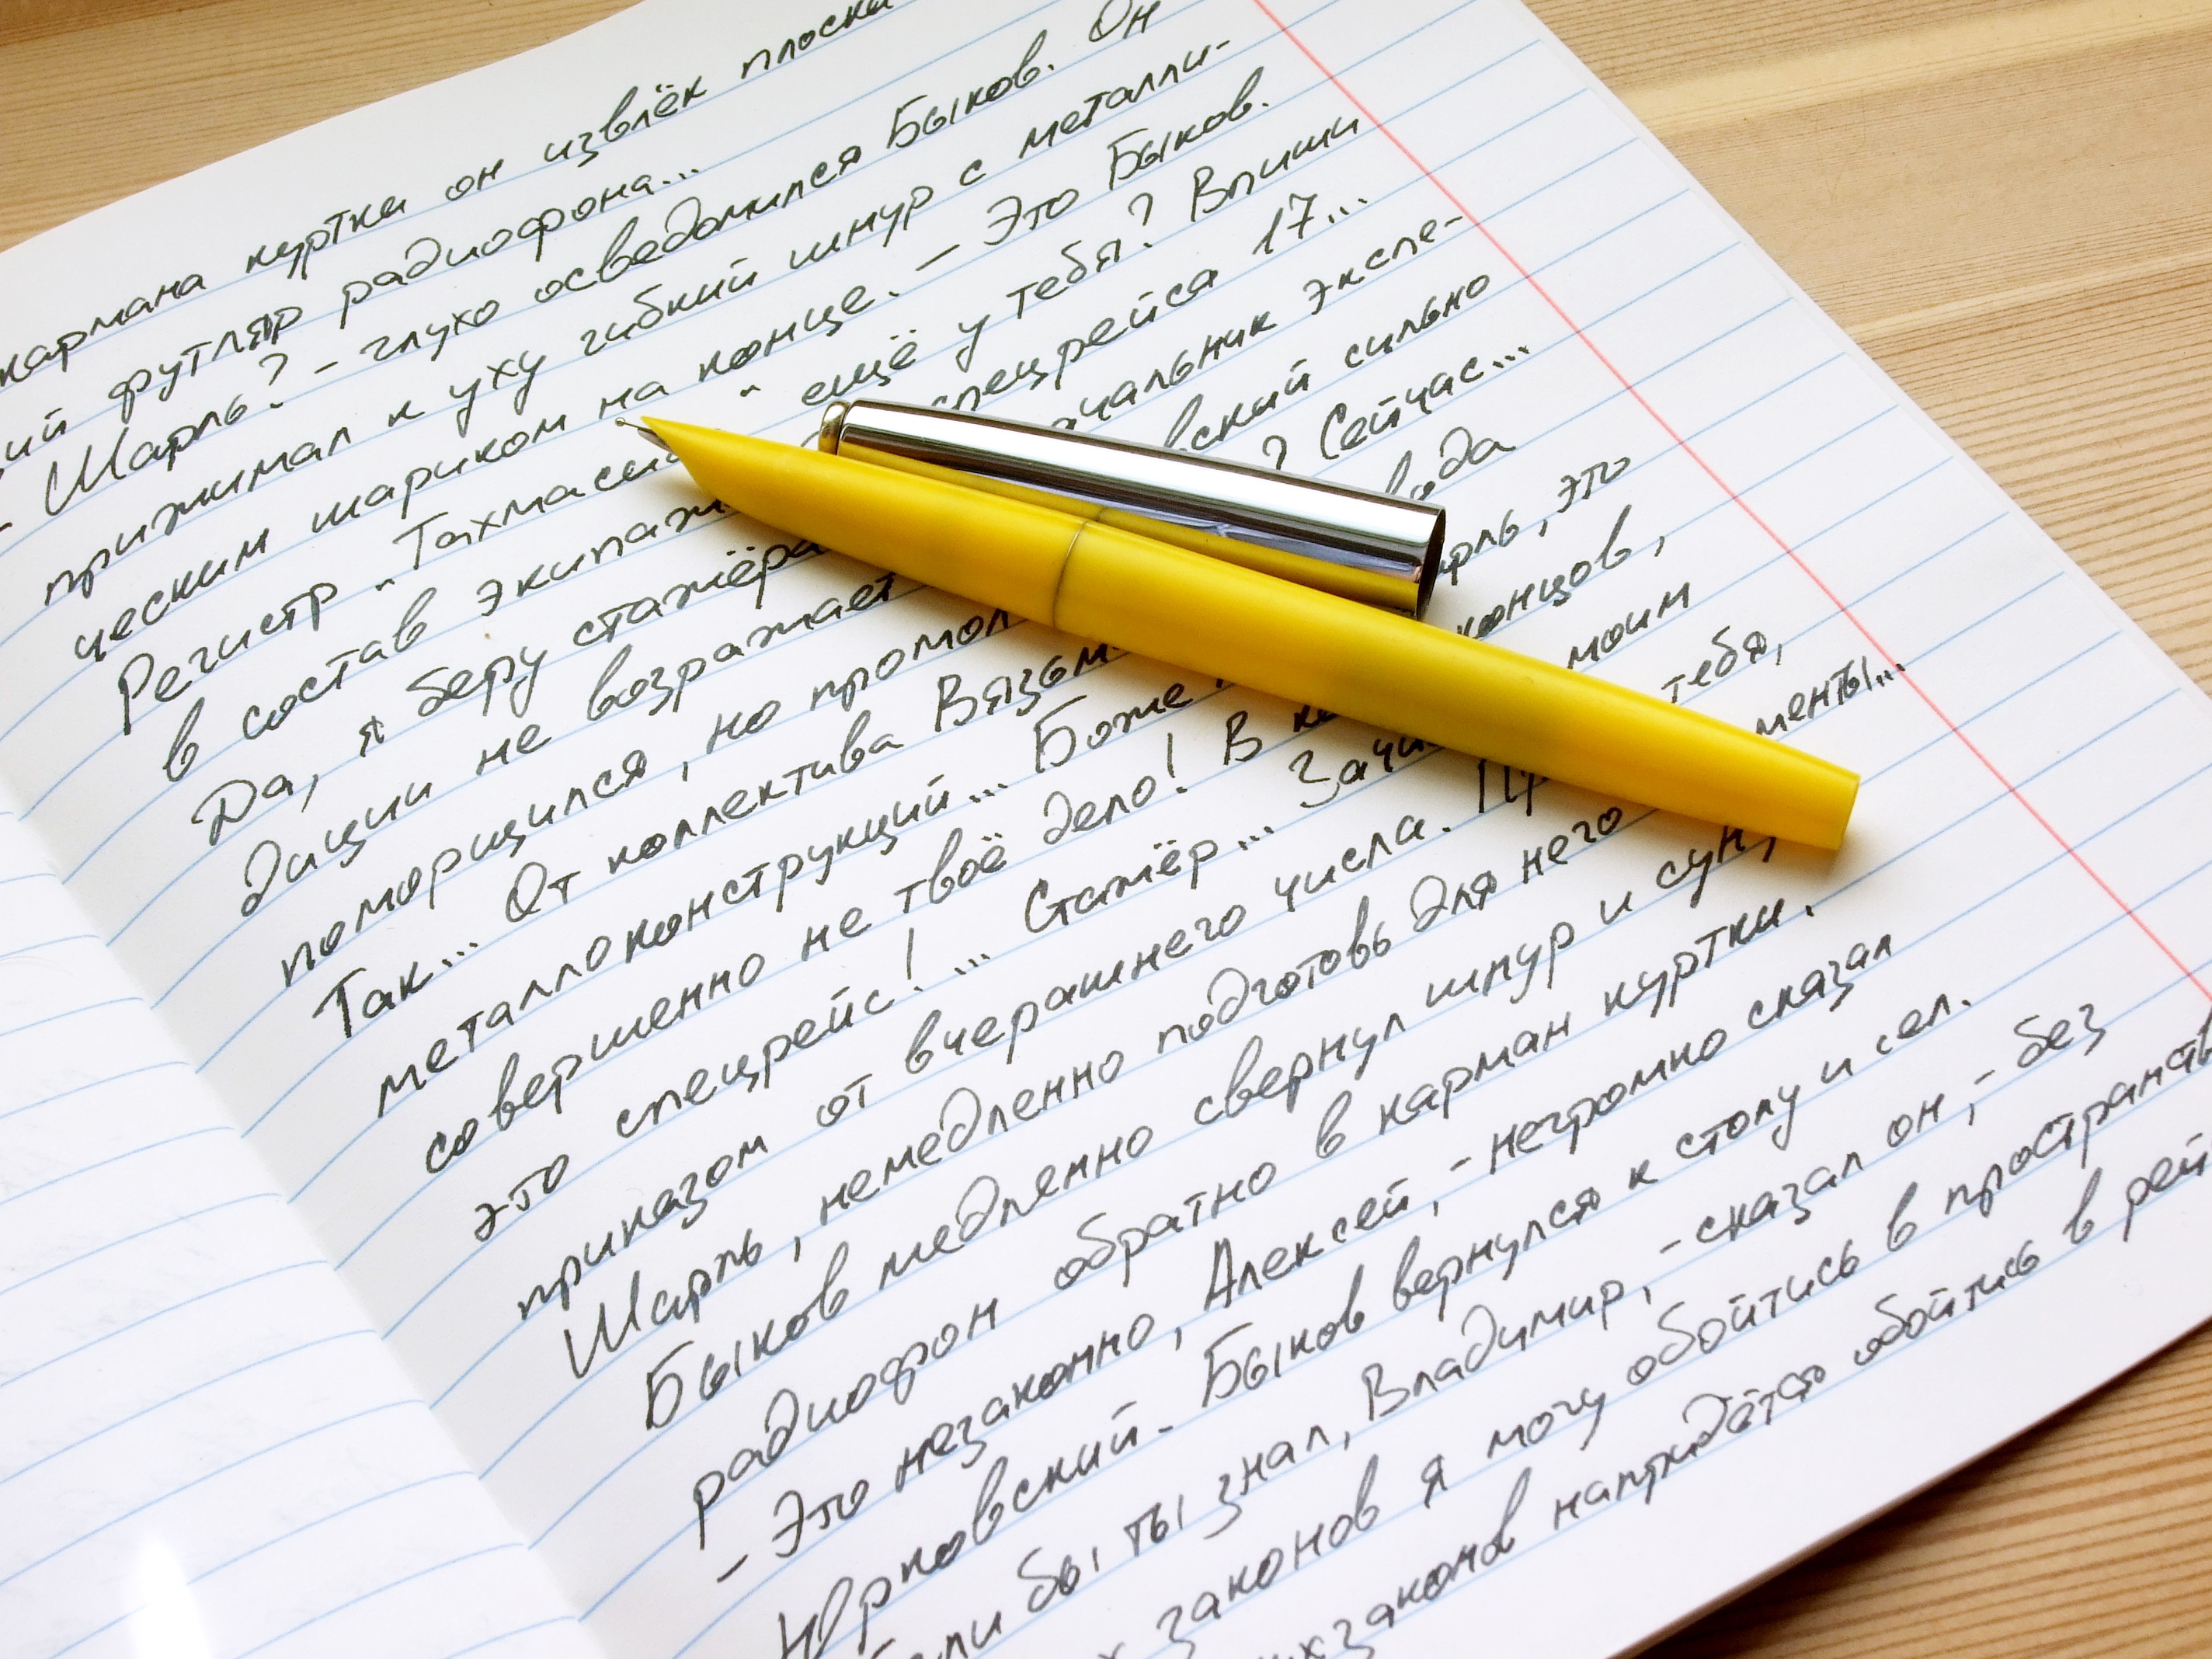 кармана куртки он извлёк плоски
ий футляр радиофона...
- Шарль? - глухо осведомился Быков. Он
прижимал к уху гибкий шнур с металли-
ческим шариком на конце. - Это Быков.
Регистр "Тахмасиб" ещё у тебя? Впиши
в состав экипажа спецрейса 17...
Да, я беру стажёра начальник экспе-
диции не возражает вский сильно
поморщился, но промол ? Сейчас...
Так... От коллектива Вязьм вода
металлоконструкций... Боже арль, это
совершенно не твоё дело! В ко концов,
это спецрейс! ... Стажёр... Зачи моим
приказом от вчерашнего числа. тебя,
Шарль, немедленно подготовь для него менты...
Быков медленно свернул шнур и сун,
радиофон обратно в карман куртки.
- Это незаконно, Алексей, - негромко сказал
Юрковский. Быков вернулся к столу и сел.
Если бы ты знал, Владимир, - сказал он, - без
х законов я могу обойтись в пространств
их законов напридётся обойтись в рей